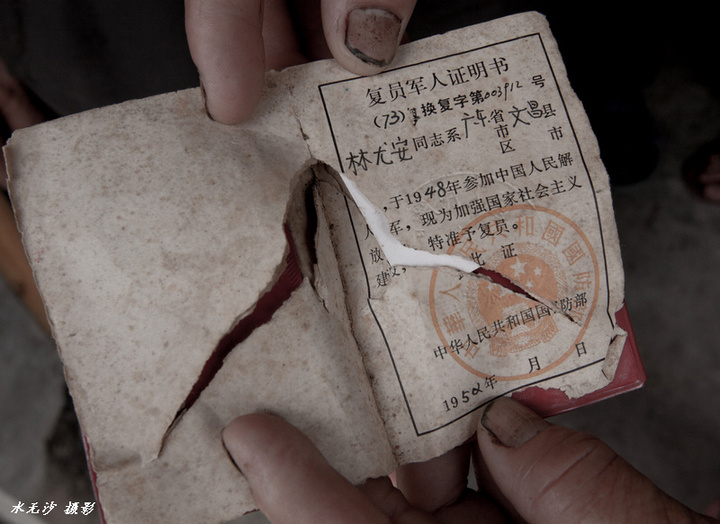 复员军人证明书
(73) 换复字第003912号
林尤安同志系广东省文昌县
市 市
区
,于1948年参加中国人民解
放 军,现为加强国家社会主义
建设, 特准予复员。
此 证
中华人民共和国国 防部
195 年 月 日
水无沙 摄影